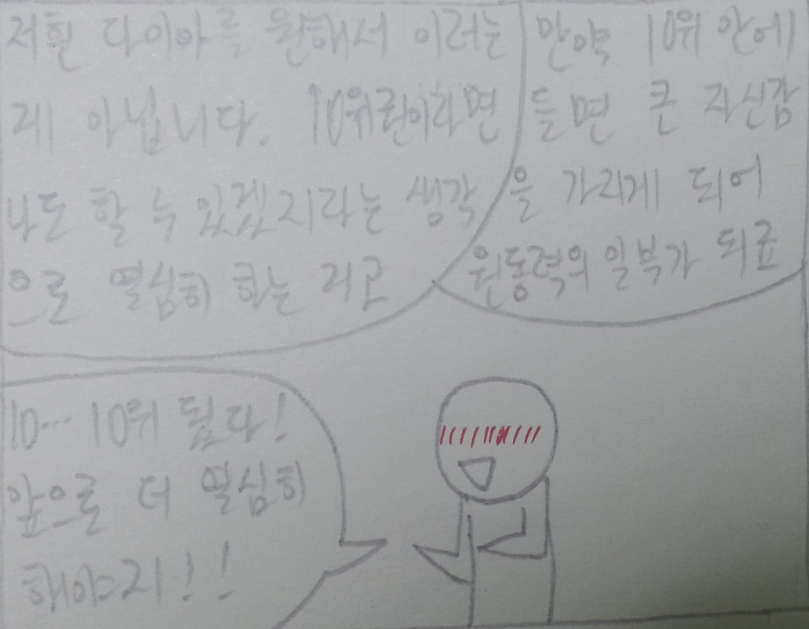 저흰 다이아를 원해서 이러는
게 아닙니다. 10위권이라면
나도 할 수 있겠지라는 생각
으로 열심히 하는 거고
만약 10위 안에
들면 큰 자신감
을 가지게 되어
원동력의 일부가 되죠
10… 10위 됐다!
앞으로 더 열심히
해야지!!